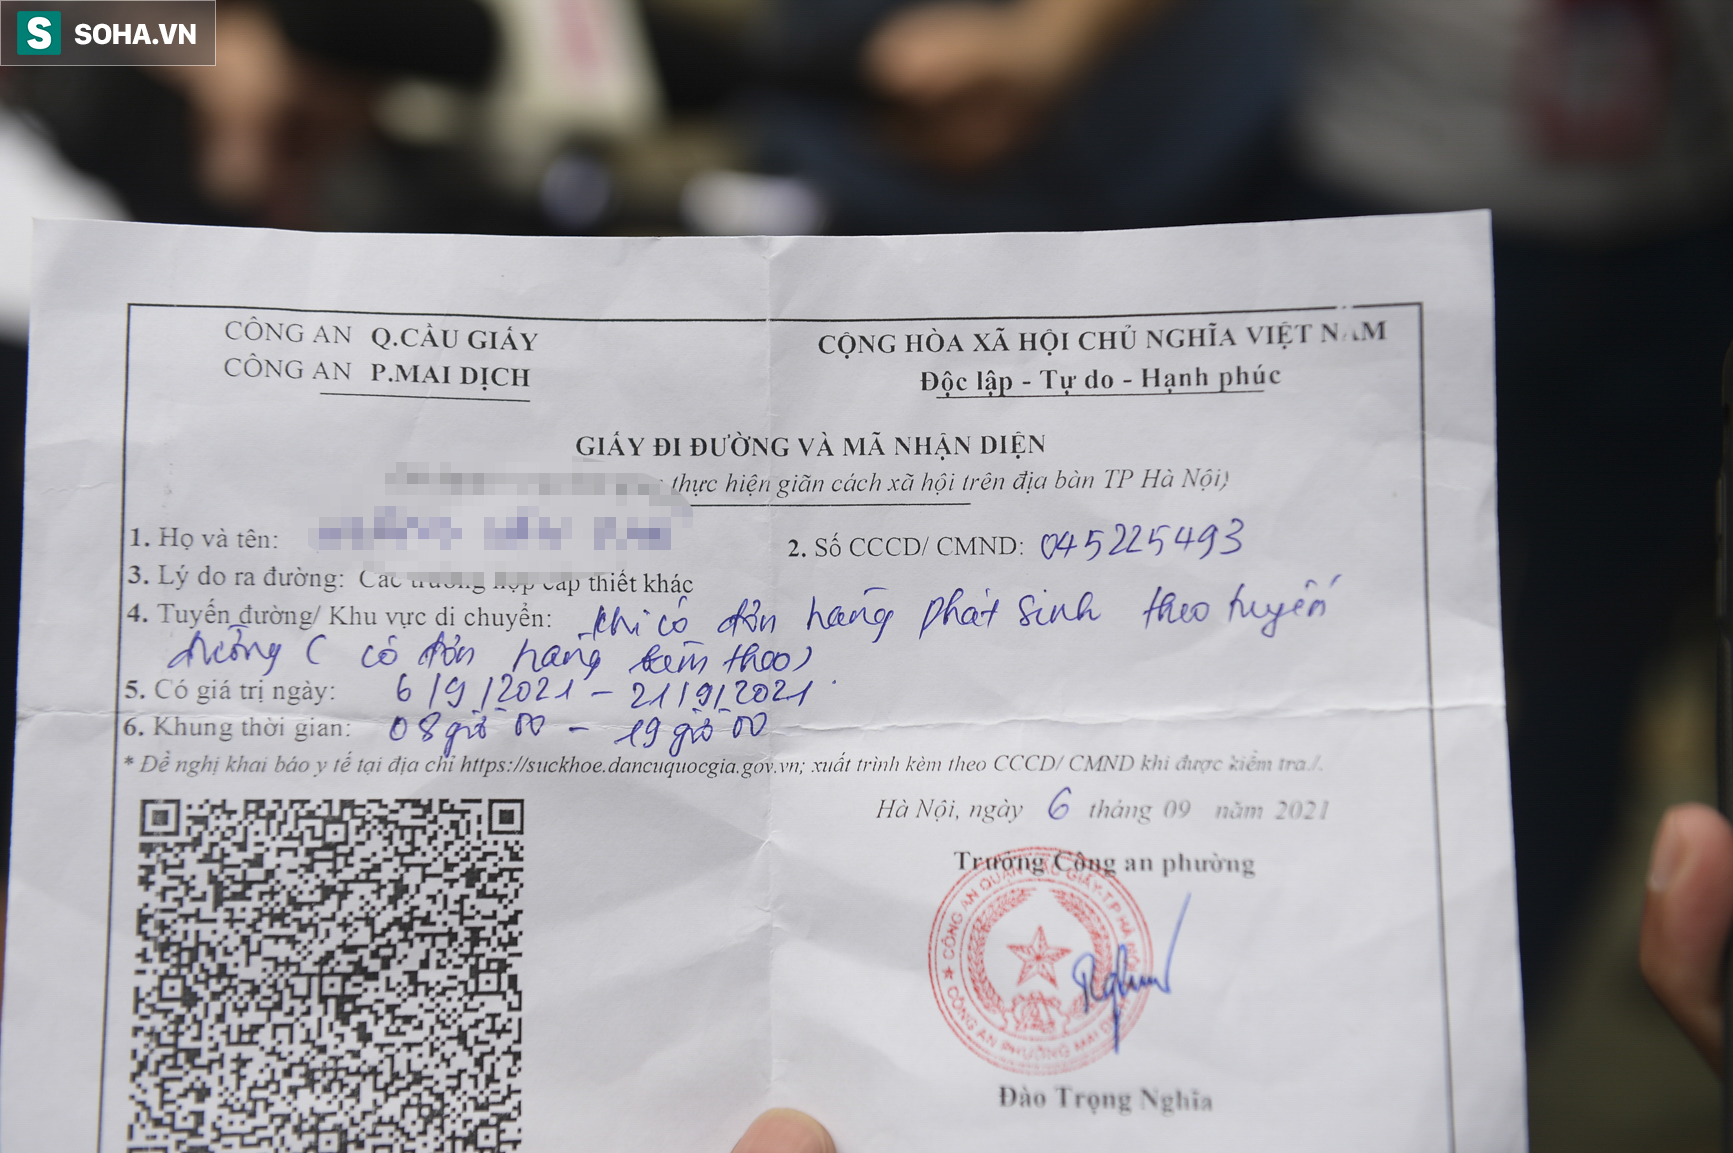 SOHA.VN
CÔNG AN Q.CẦU GIẤY
CÔNG AN P.MAI DỊCH
CỘNG HÒA XÃ HỘI CHỦ NGHĨA VIỆT NAM
Độc lập - Tự do - Hạnh phúc
GIẤY ĐI ĐƯỜNG VÀ MÃ NHẬN DIỆN
thực hiện giãn cách xã hội trên địa bàn TP Hà Nội)
1. Họ và tên:
2. Số CCCD/ CMND: 045225493
3. Lý do ra đường: Các trường hợp cấp thiết khác
4. Tuyến đường/ Khu vực di chuyển: khi có đơn hàng phát sinh theo tuyến
đường ( có đơn hàng kèm theo)
5. Có giá trị ngày: 6/9/2021 - 21/9/2021.
6. Khung thời gian: 08 giờ 00 - 19 giờ 00
* Đề nghị khai báo y tế tại địa chỉ https://suckhoe.dancuquocgia.gov.vn; xuất trình kèm theo CCCD/ CMND khi được kiểm tra./.
Hà Nội, ngày 6 tháng 09 năm 2021
Trưởng Công an phường
CÔNG AN QUẬN CẦU GIẤY-T.P HÀ NỘI
CÔNG AN PHƯỜNG MAI DỊCH
Đào Trọng Nghĩa